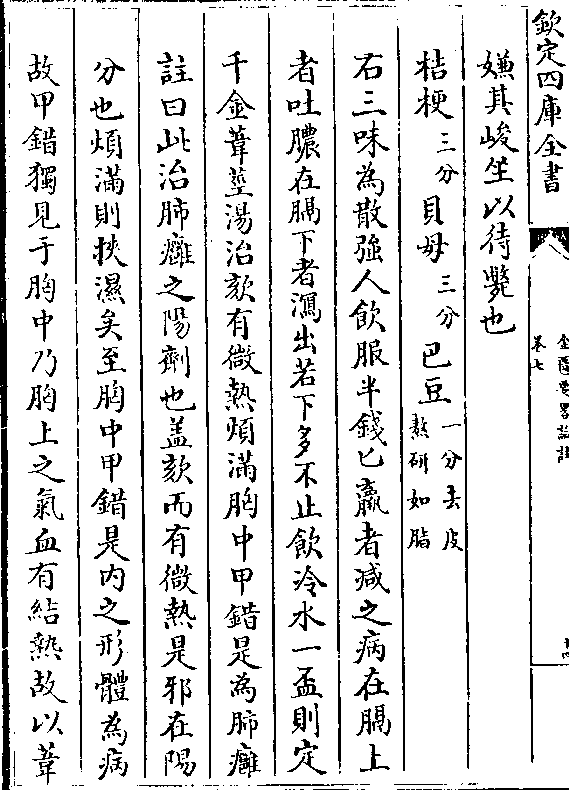 欽定四庫全書
金匱要畧論註
卷七
嫌其峻坐以待斃也
桔梗三分貝母三分巴豆一分去皮熬研如脂
右三味為散強人飲服半錢匕羸者減之病在膈上
者吐膿在膈下者瀉出若下多不止飲冷水一盃則定
千金葦莖湯治欬有微熱煩滿胸中甲錯是為肺癰
註曰此治肺癰之陽劑也盖欬而有微熱是邪在陽
分也煩滿則挾濕矣至胸中甲錯是内之形體為病
故甲錯獨見于胸中乃胸上之氣血有結熱故以葦